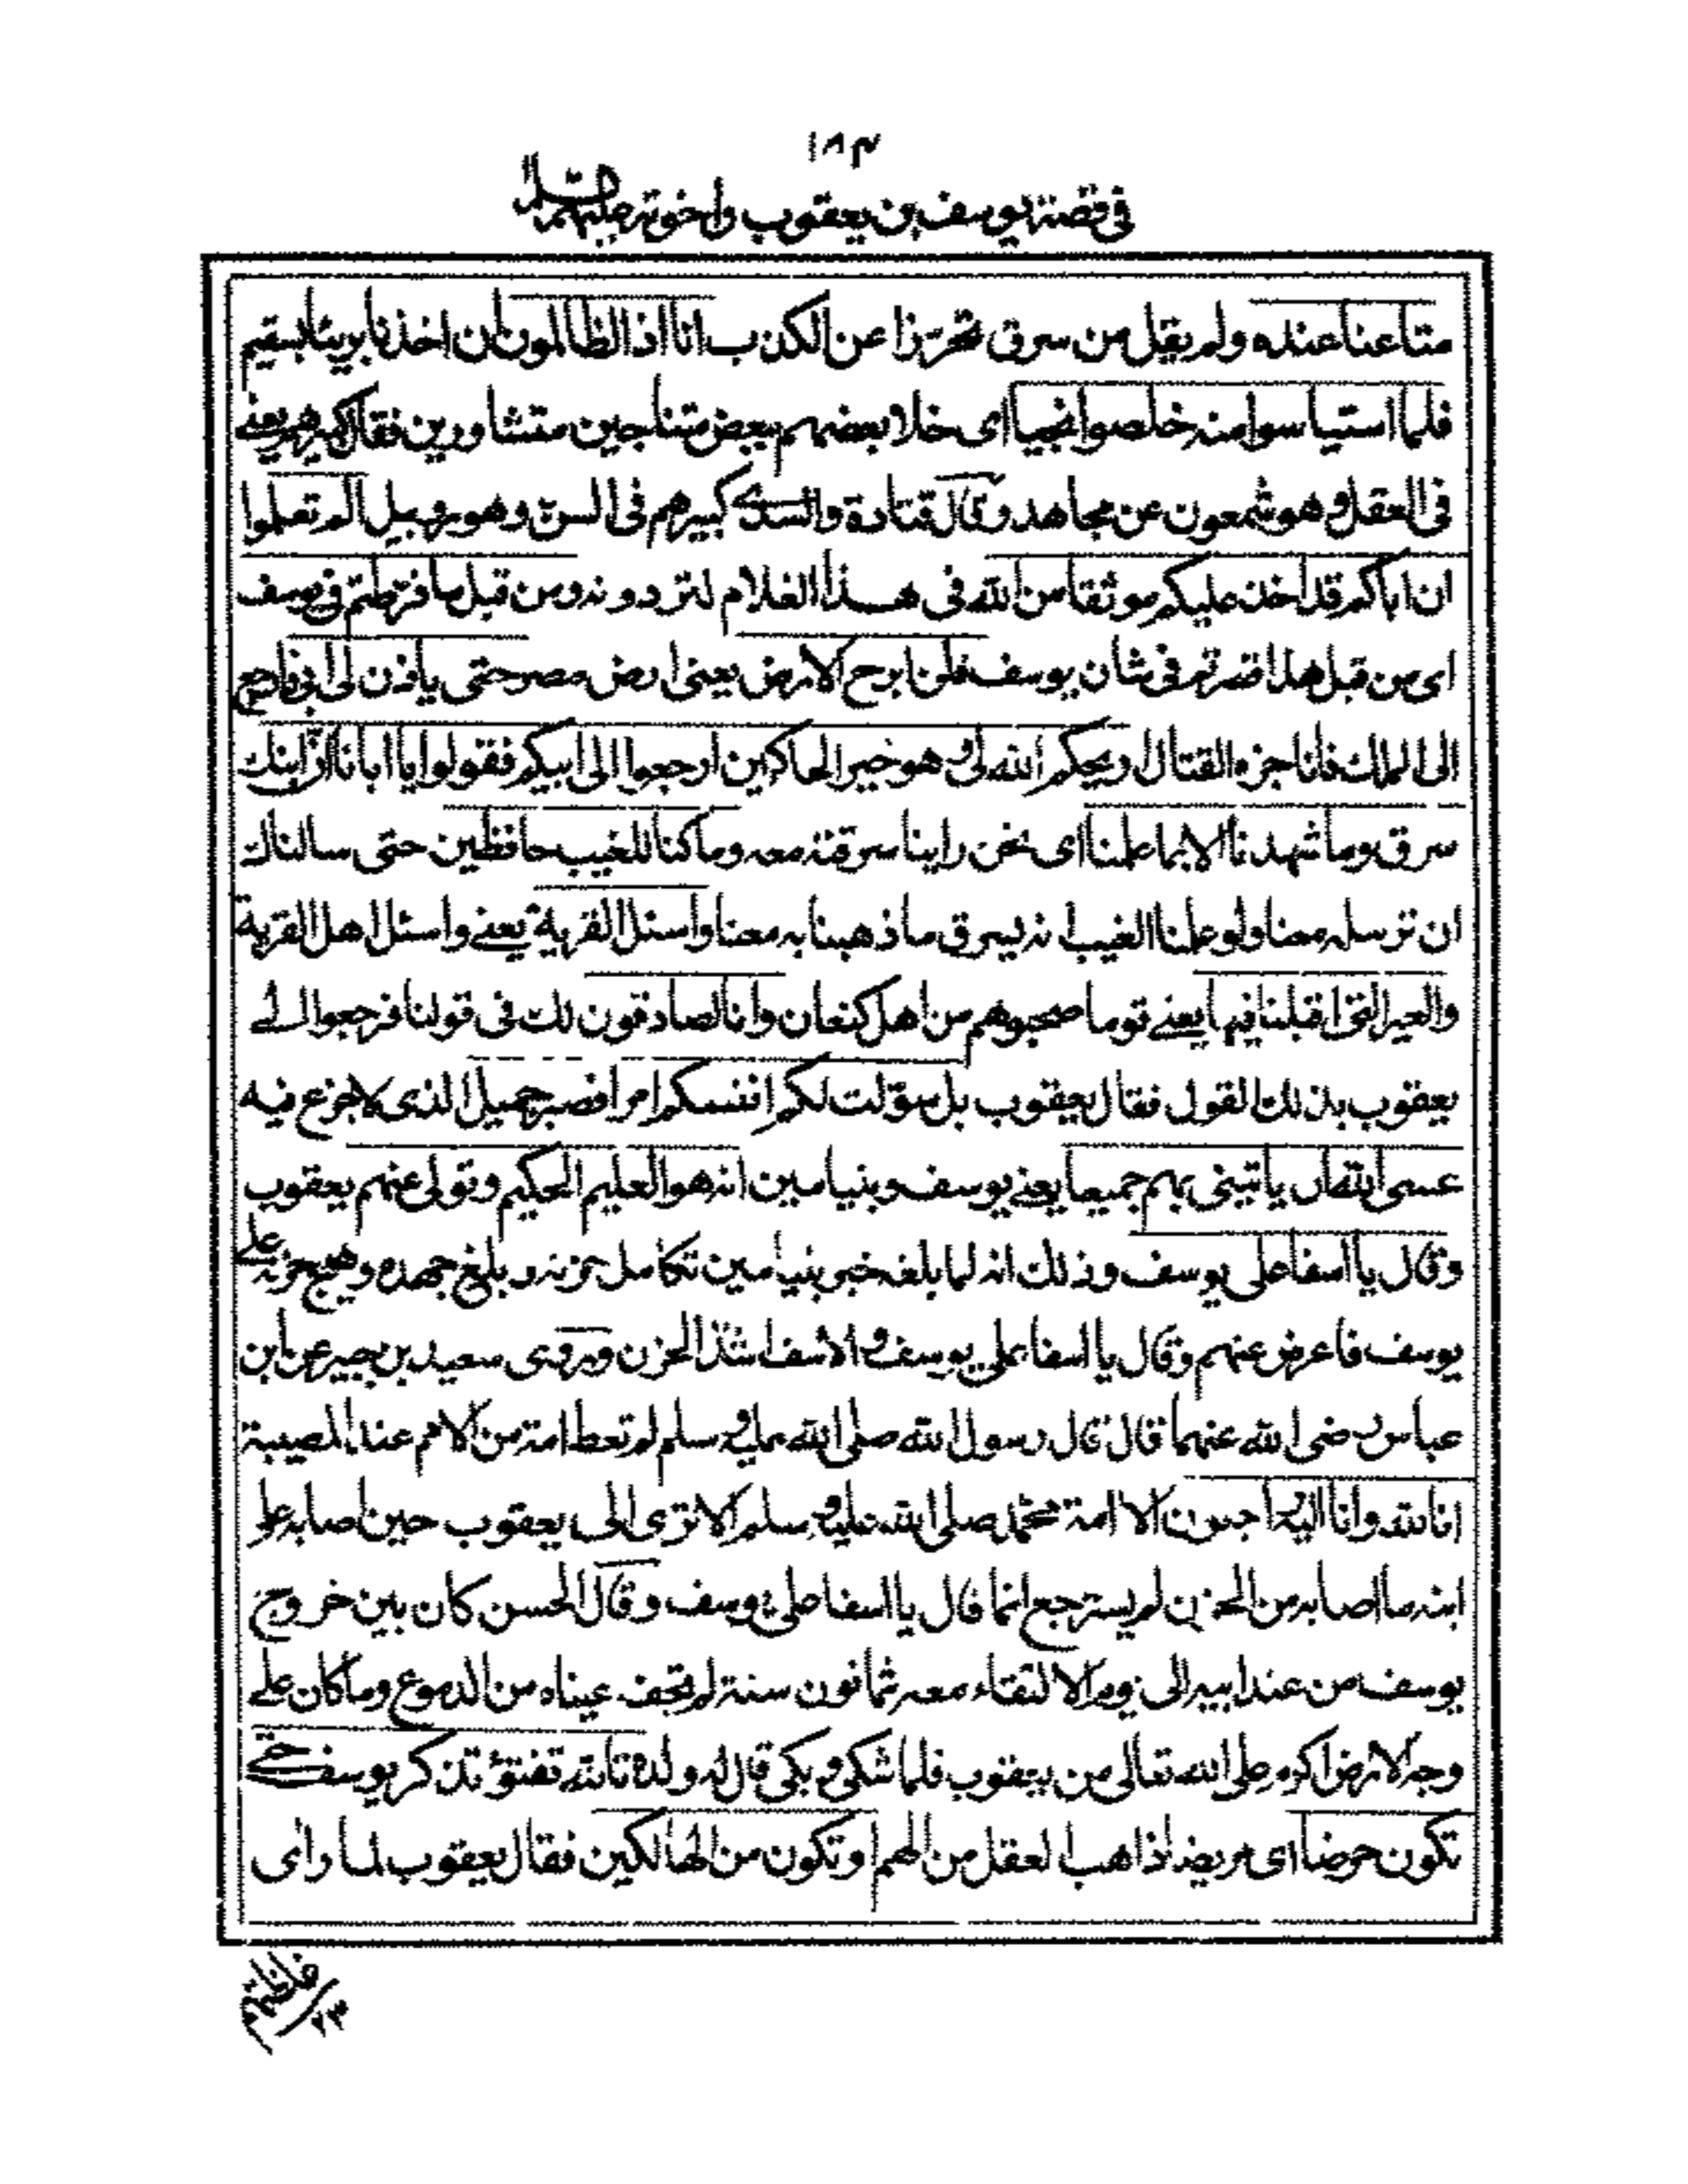 ١٨٣
فى قصة يوسف بن يعقوب واخوته عليهم السلام
متاعنا عنده ولم يقل من سرق تحرّزا عن الكذب انا اذا لظالمون ان اخذنا بريئا بسقيم
فلما استياسوا منه خلصوا نجيا اى خلا بعضهم ببعض متناجين متشاورين فقال كبيرهم يعنے
فى العقل وهو شمعون عن مجاهد وقال قتادة والسدے كبيرهم فى السن وهو روبيل الم تعلموا
ان اباكم قد اخذ عليكم موثقا من الله فى هذا الغلام لتردونه ومن قبل ما فرّطتم فى يوسف
اى من قبل هذا قصرتم فى شان يوسف فلن ابرح الارض يعنى ارض مصر حتى ياذن لى ابى فارجع
الى الملك فاناجزه القتال او يحكم الله لى وهو خير الحاكمين ارجعوا الى ابيكم فقولوا يا ابانا انّ ابنك
سرق وما شهدنا الا بما علمنا اى نحن راينا سرقته معه وما كنا للغيب حافظين حتى سالناك
ان ترسله معنا ولو علمنا الغيب انه يسرق ما ذهبنا به معنا واسئل القرية يعنے واسئل اهل القرية
والعير التى اقبلنا فيها يعنے قوما صحبوهم من اهل كنعان وانا لصادقون لك فى قولنا فرجعوا الے
يعقوب بذلك القول فقال يعقوب بل سوّلت لكم انفسكم امرا فصبر جميل الذى لا جزع فيه
عسى الله ان ياتينى بهم جميعا يعنے يوسف وبنيامين انه هو العليم الحكيم وتولى عنهم يعقوب
وقال يا اسفا على يوسف وذلك انه لما بلغه خبر بنيامين تكامل حزنه وبلغ جهده وهيج حزنه علے
يوسف فاعرض عنهم وقال يا اسفا على يوسف والاسف اشدّ الحزن وروى سعيد بن جبير عن ابن
عباس رضى الله عنهما قال قال رسول الله صلى الله عليه وسلم لم تعط امة من الامم عند المصيبة
انا لله وانا اليه راجعون الا امة محمد صلى الله عليه وسلم الا ترى الى يعقوب حين اصابه على
ابنه ما اصابه من الحزن لم يسترجع انما قال يا اسفا على يوسف وقال الحسن كان بين خروج
يوسف من عند ابيه الى يوم الالتقاء معه ثمانون سنة لم تجف عيناه من الدموع وما كان علے
وجه الارض اكرم على الله تعالى من يعقوب فلما شكى وبكى قال له ولده تالله تفتؤ تذكر يوسف حتے
تكون حرضا اى مريضا ذاهب العقل من الهم او تكون من الهالكين فقال يعقوب لما راى